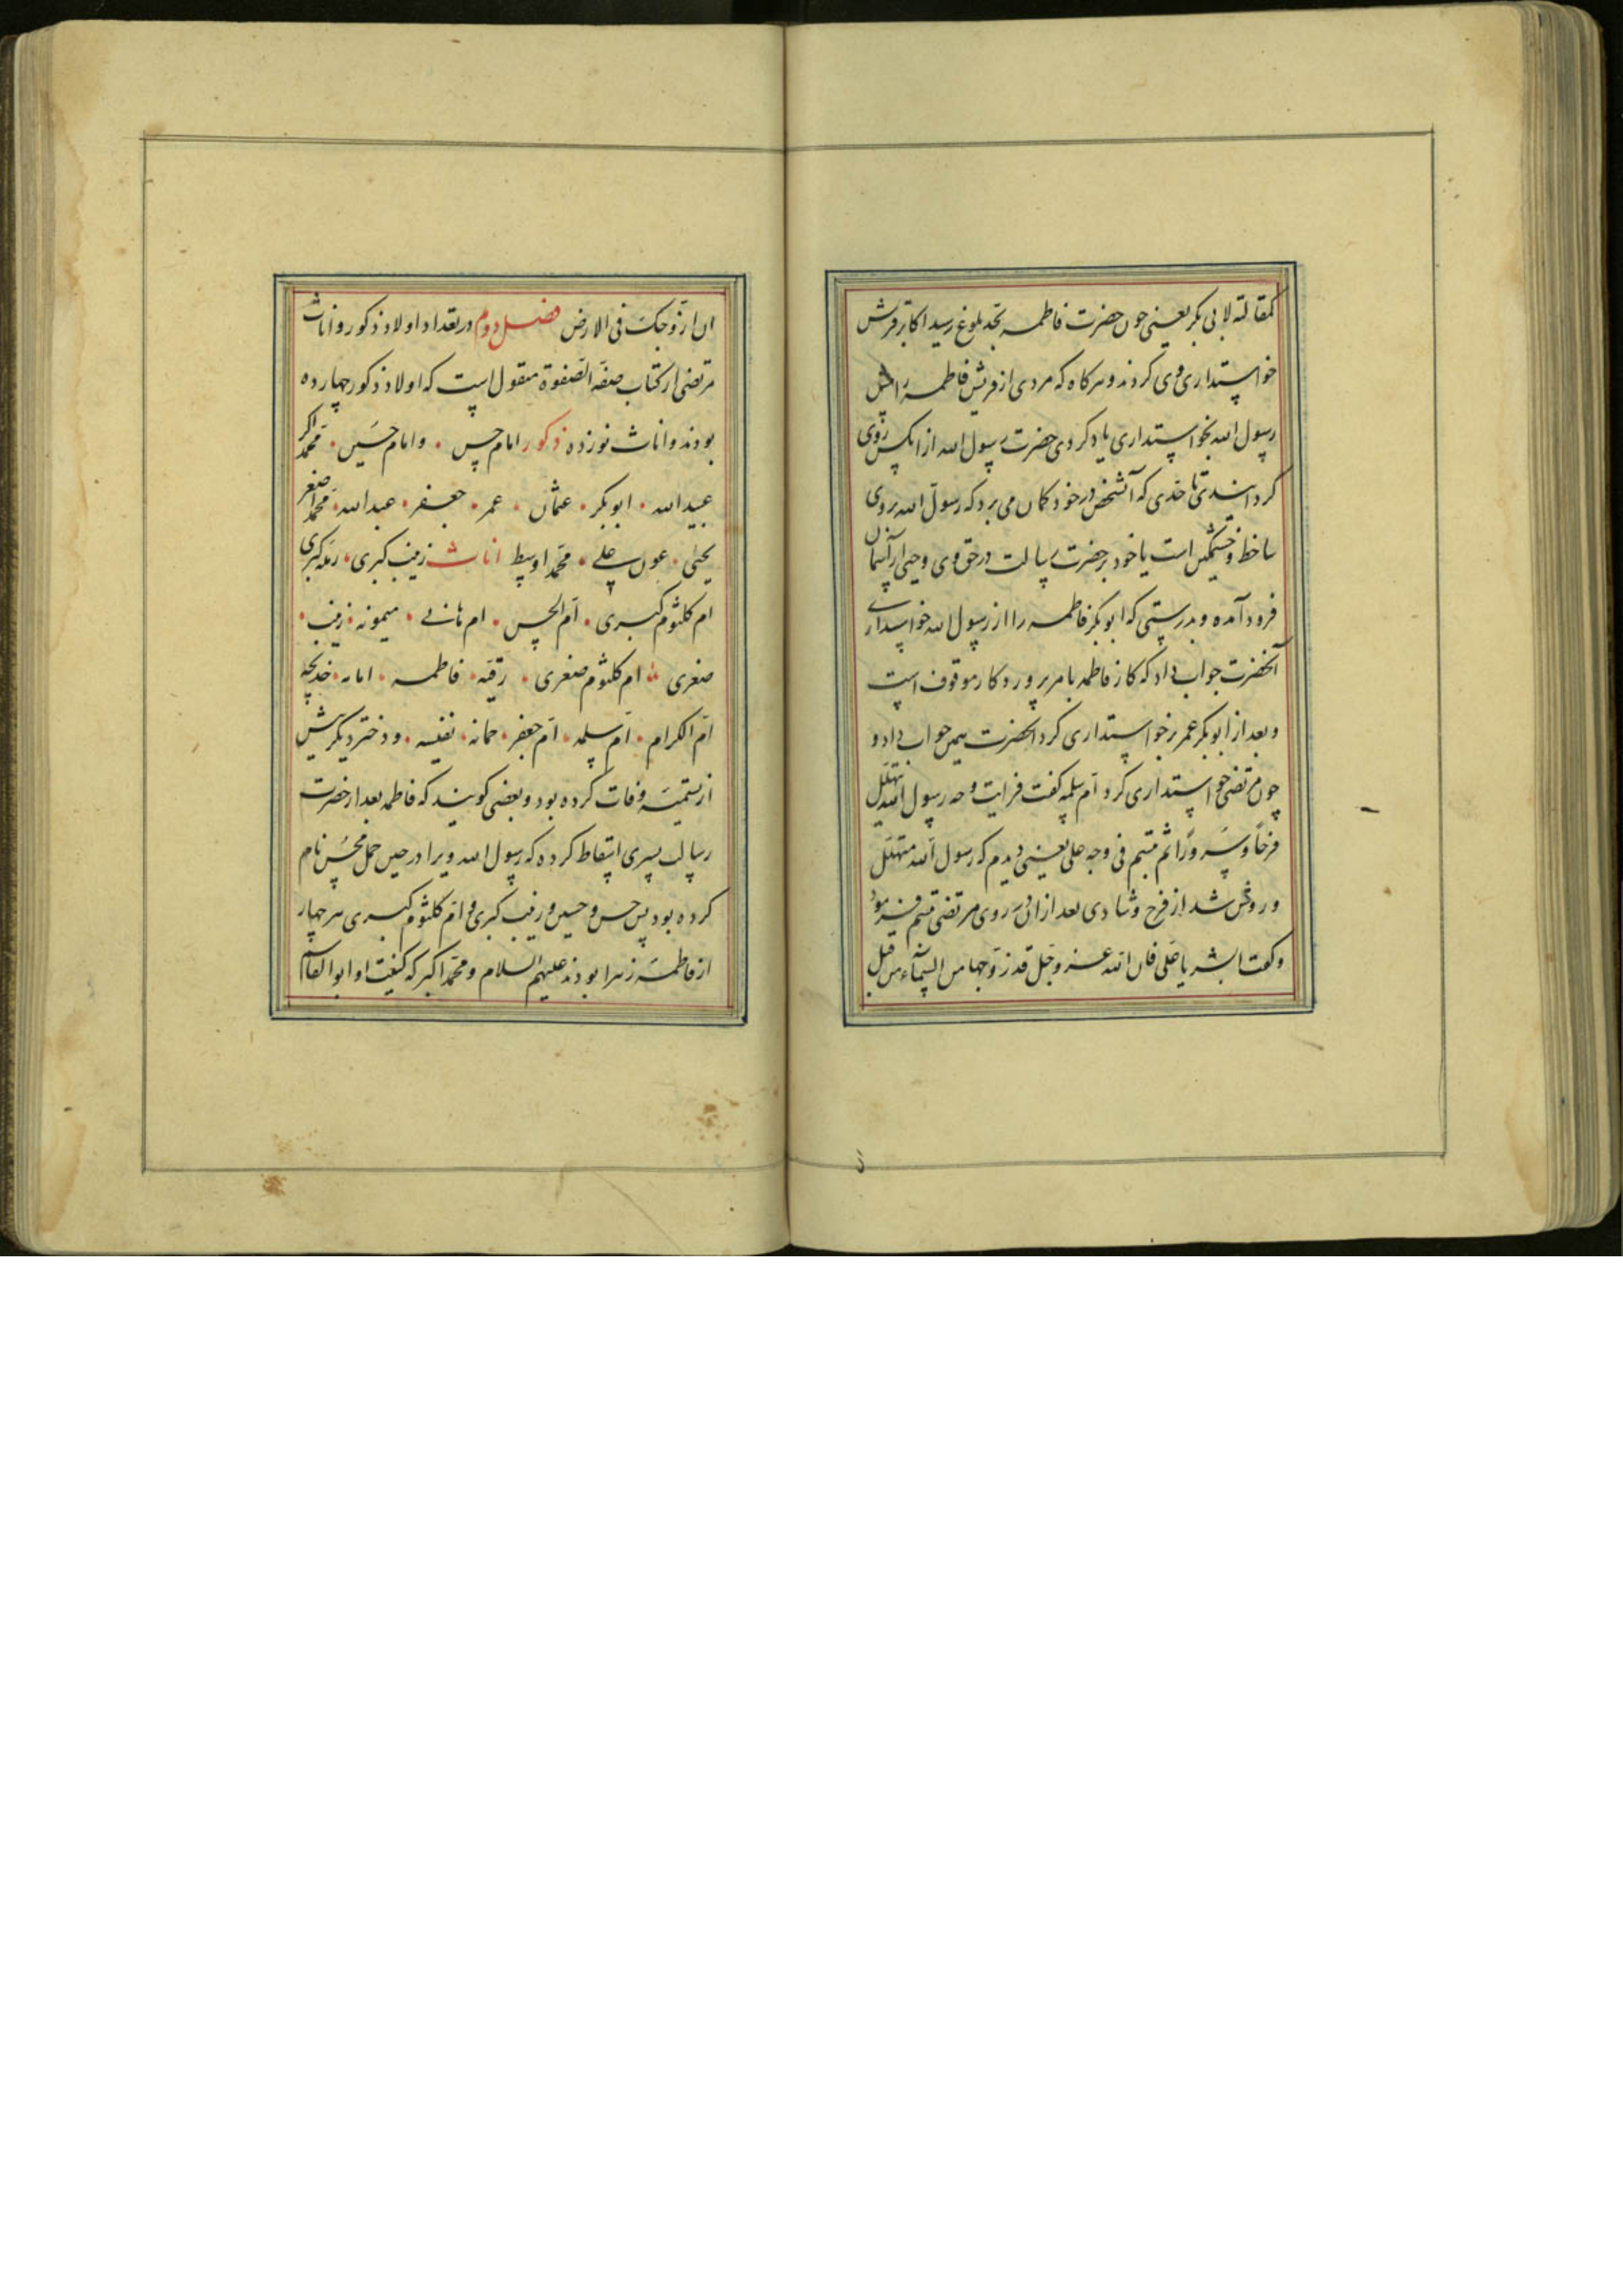 کمقالته لابی بکر یعنی چون حضرت فاطمه بحد بلوغ رسید اکابر قریش
خواستداری وی کردند و هرکاه که مردی از قریش فاطمه را پیش
رسول الله بخواستداری یاد کردی حضرت رسول الله از انکس روی
کردانیدی تا حدی که آنشخص در خود کمان می برد که رسول الله بروی
ساخط و خشمکین است یا خود بر حضرت رسالت در حق وی وحیی از آسمان
فرود آمده و بدرستی که ابوبکر فاطمه را از رسول الله خواستداری
آنحضرت جواب داد که کار فاطمه بامر پروردکار موقوف است
و بعد از ابوبکر عمر خواستداری کرد انحضرت همین جواب داد و
چون مرتضی خواستداری کرد ام سلمه کفت فرایت وجه رسول الله یتهلل
فرحا و سرورا ثم تبسم فی وجه علی یعنی دیدم که رسول الله متهلل
و روشن شد از فرح و شادی بعد از ان در روی مرتضی تبسم فرمود
و کفت ابشر یا علی فان الله عز و جل قد زوجها من السماء من قبل
ان ازوجک فی الارض فصل دوم در تعداد اولاد ذکور و اناث
مرتضی از کتاب صفة الصفوة منقول است که اولاد ذکور چهارده
بودند و اناث نوزده ذکور امام حسن ۰ و امام حسین ۰ محمد اکبر
عبیدالله ۰ ابوبکر ۰ عثمان ۰ عمر ۰ جعفر ۰ عبدالله ۰ محمد اصغر
یحیی ۰ عون علی ۰ محمد اوسط اناث زینب کبری ۰ رمله کبری
ام کلثوم کبری ۰ ام الحسن ۰ ام هانی ۰ میمونه ۰ زینب ۰
صغری ام کلثوم صغری ۰ رقیه ۰ فاطمه ۰ امامه ۰ خدیجه
ام الکرام ۰ ام سلمه ۰ ام جعفر ۰ جمانه ۰ نفیسه ۰ و دختر دیکر پیش
از تسمیه وفات کرده بود و بعضی کویند که فاطمه بعد از حضرت
رسالت پسری اسقاط کرده که رسول الله ویرا در حین حمل محسن نام
کرده بود پس حسن و حسین و زینب کبری و ام کلثوم کبری هر چهار
از فاطمه زهرا بودند علیهم السلام و محمد اکبر که کنیت او ابوالقاسم